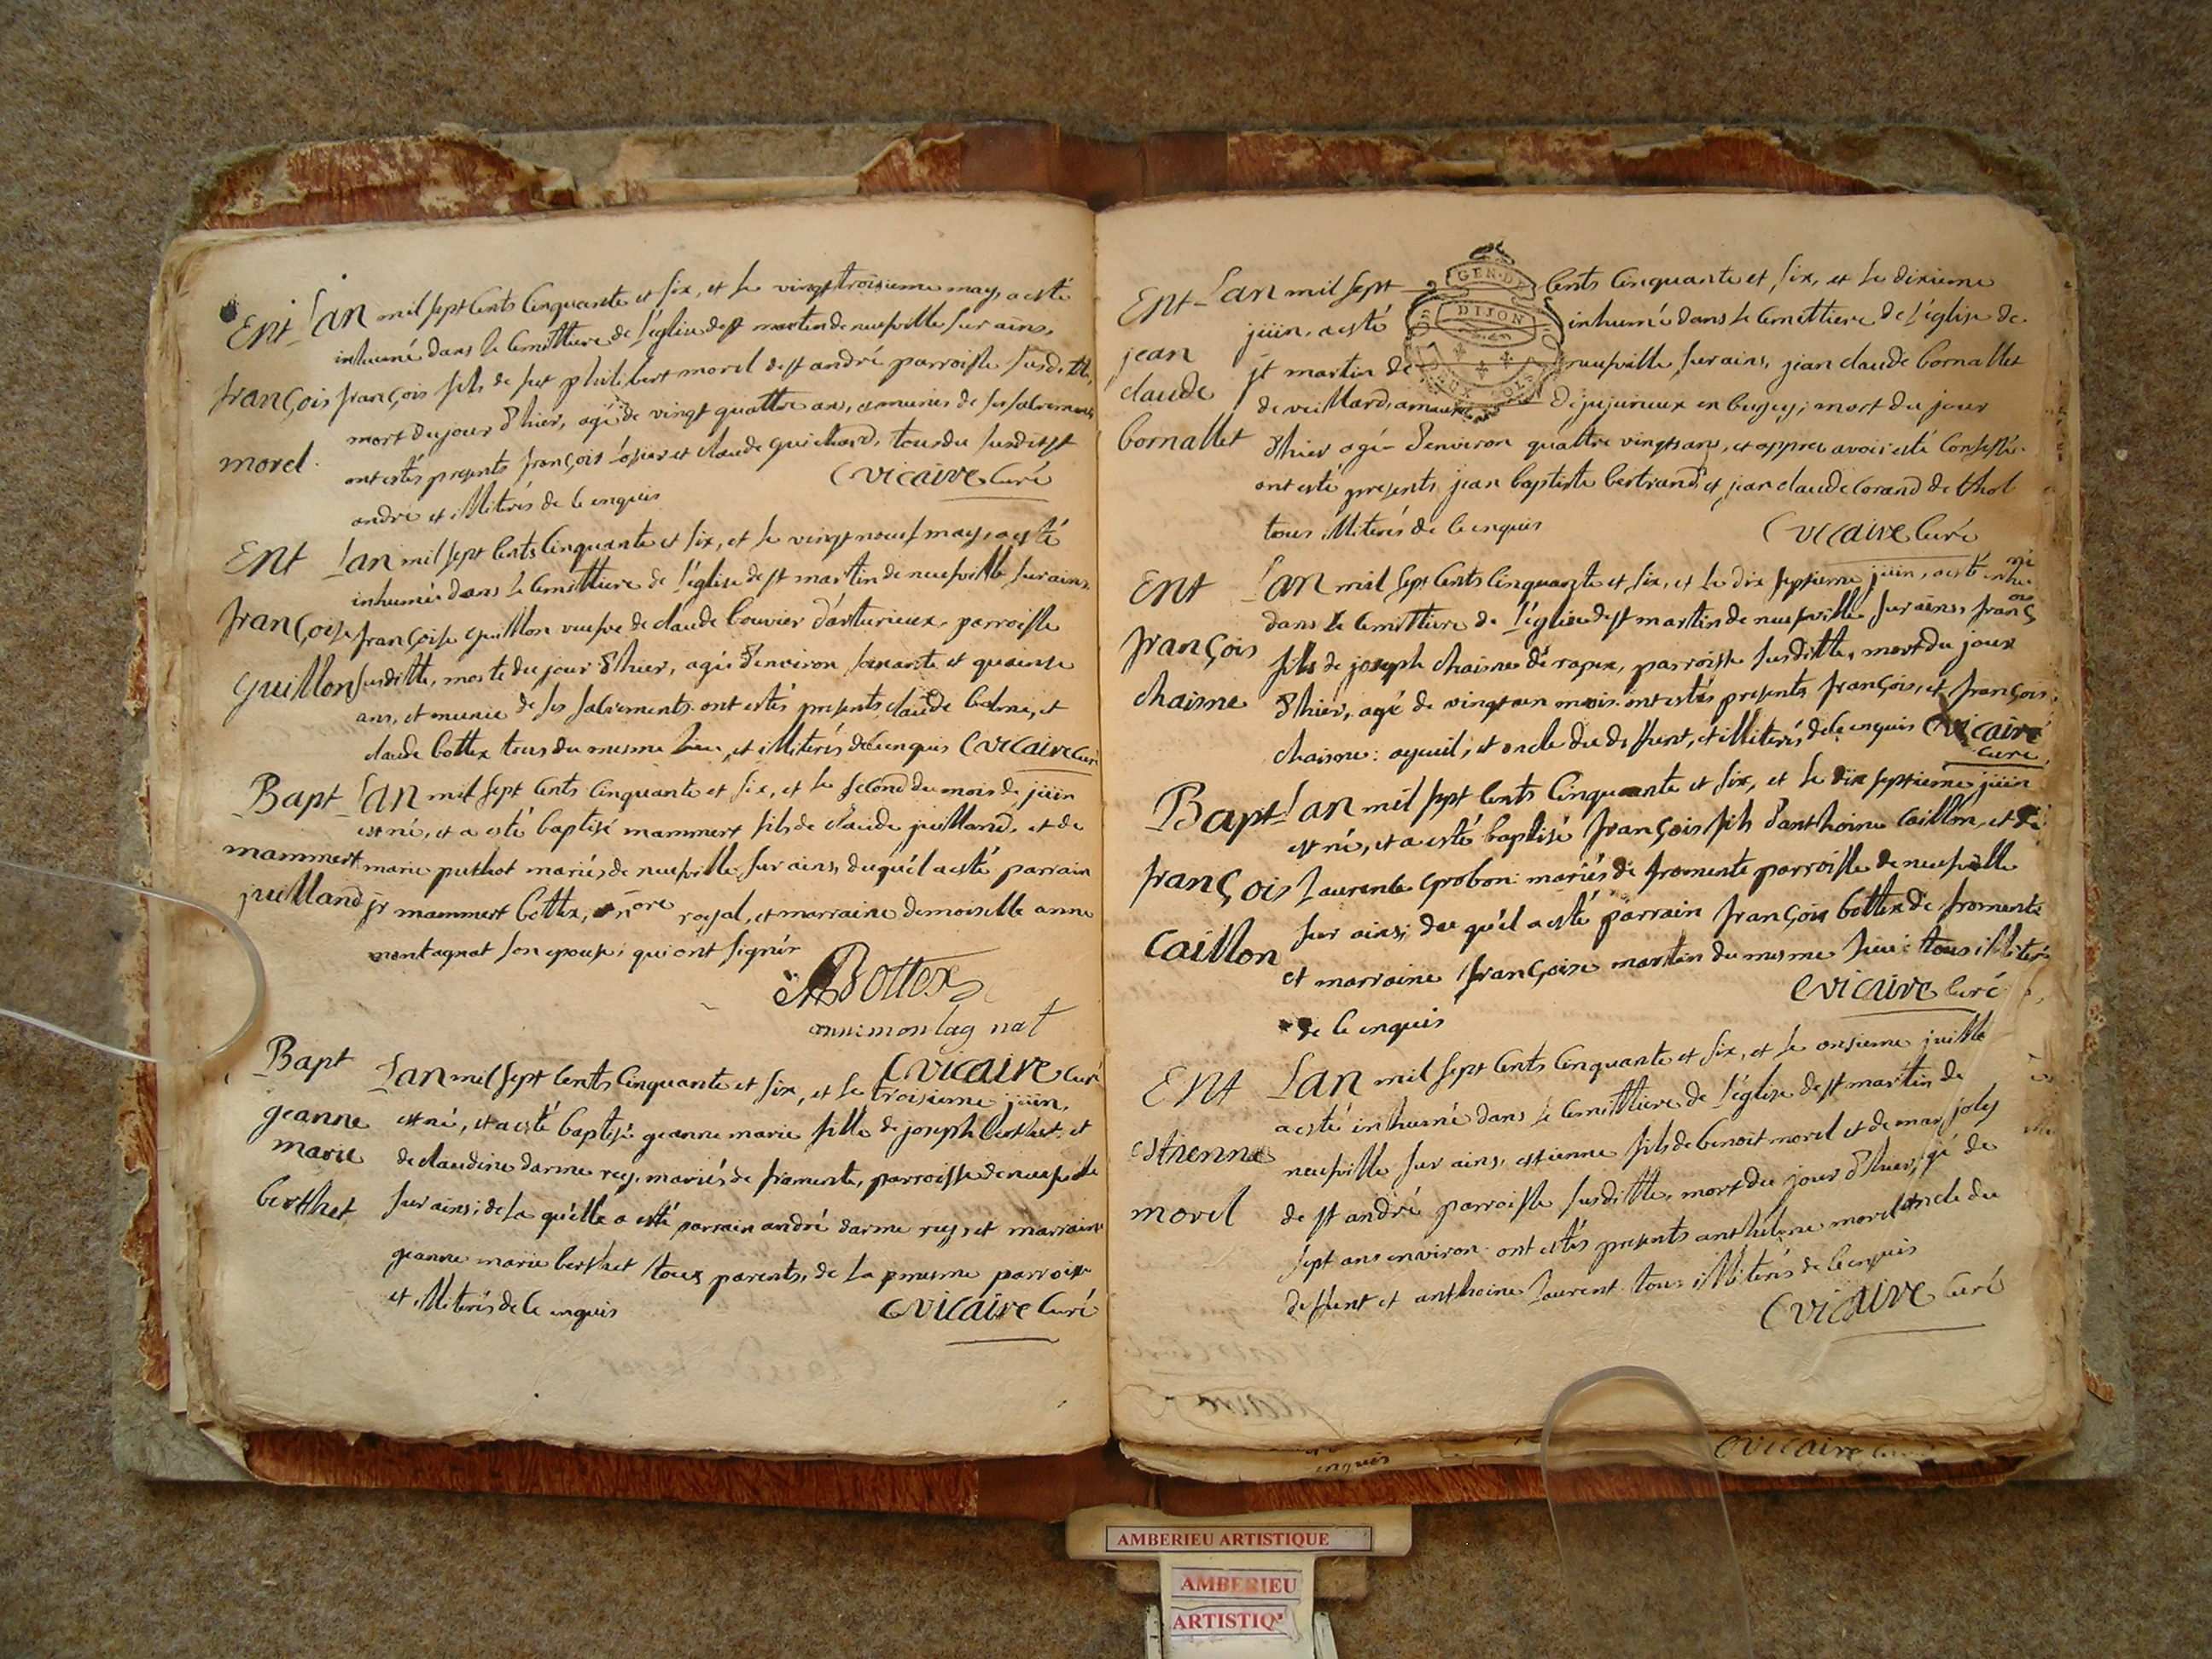 Ent Lan mil sept Cents Cinquante et six, et le vingt troisieme may, a esté
inhumé dans le Cemittiere de l'églize de st martin de neufville sur ains,
françois françois fils de feu philibert morel de st andré parroisse susditte,
mort du jour d'hier, agé de vingt quattre ans, et munis de ses sacrements
morel. ont estés presents françois et claude guichard, tous du susdit st
andré et illiterés de ce enquis Cvicaire Curé
Ent Lan mil sept Cents Cinquante et six, et le vingt neuf may, a esté
inhumée dans le Cemittiere de l'églize de st martin de neufville sur ains,
françoise françoise guillon veufve de claude bouvier d'arturieux, parroisse
guillon susditte, morte du jour d'hier, agée d'environ soixante et quainse
ans, et munie de ses sacrements. ont estés presents claude balme, et
claude bottex tous du mesme lieu, et illiterés de ce enquis Cvicaire Curé
Bapt Lan mil sept Cents Cinquante et six, et le second du mois de juin
est né, et a esté baptisé mammert fils de claude juilland, et de
mammert marie puthot mariés de neufville sur ains, duquél a esté parrain
juilland sr mammert bottex, nore royal, et marraine demoiselle anne
montagnat son epouse; qui ont signés
Bottex
anne montagnat
Cvicaire Curé
Bapt Lan mil sept Cents Cinquante et six, et le troisieme juin,
geanne est né, et a esté baptisé geanne marie fille de joseph berthet, et
marie de claudine darme rey, mariés de fromente, parroisse de neufville
berthet sur ains; de la quélle a esté parrain andré darme rey, et marraine
geanne marie berthet tous parents, de la mesme parroisse
et illiterés de ce enquis Cvicaire Curé
GEN. D
DIJON
DEUX SOLS
Ent Lan mil sept Cents Cinquante et six, et le dixieme
juin, a esté inhumé dans le Cemittiere de l'églize de
jean st martin de neufville sur ains, jean claude bornallet
claude de veillard, de jujurieux en bugey; mort du jour
bornallet d'hier agé d'environ quattre vingts ans, et apprez avoir esté Confessé.
ont esté presents jean baptiste bertrand et jean claude Corand de thol
tous illiterés de ce enquis Cvicaire Curé
Ent Lan mil sept Cents Cinquante et six, et le dix septieme juin, a esté inhumé
dans le Cemittiere de l'églize de st martin de neufville sur ains, françois
françois fils de joseph chaisne de rapex, parroisse susditte, mort du jour
chaisne d'hier, agé de vingt un mois. ont estés presents françois, et françois
chaisne: ayeuil, et oncle du deffunt, et illiterés de ce enquis Cvicaire
Curé
Bapt Lan mil sept Cents Cinquante et six, et le dix septieme juin
est né, et a esté baptisé françois fils d'anthoine Caillon, et de
françois Laurence grobon mariés de fromente parroisse de neufville
sur ains; du qu'él a esté parrain françois bottex de fromente
Caillon et marraine françoise martin du mesme lieu: tous illiterés
de ce enquis Cvicaire Curé
Ent Lan mil sept Cents Cinquante et six, et le onsieme juillet
a esté inhumé dans le Cemittiere de l'églize de st martin de
estienne neufville sur ains, estienne fils de benoit morel et de joly
morel de st andré parroisse susditte, mort du jour d'hier, agé de
sept ans environ. ont estés presents anthelme morel oncle du
deffunt et anthoine Laurent. tous illiterés de ce enquis
Cvicaire Curé
enquis Cvicaire
AMBERIEU ARTISTIQUE
AMBERIEU
ARTISTIQ